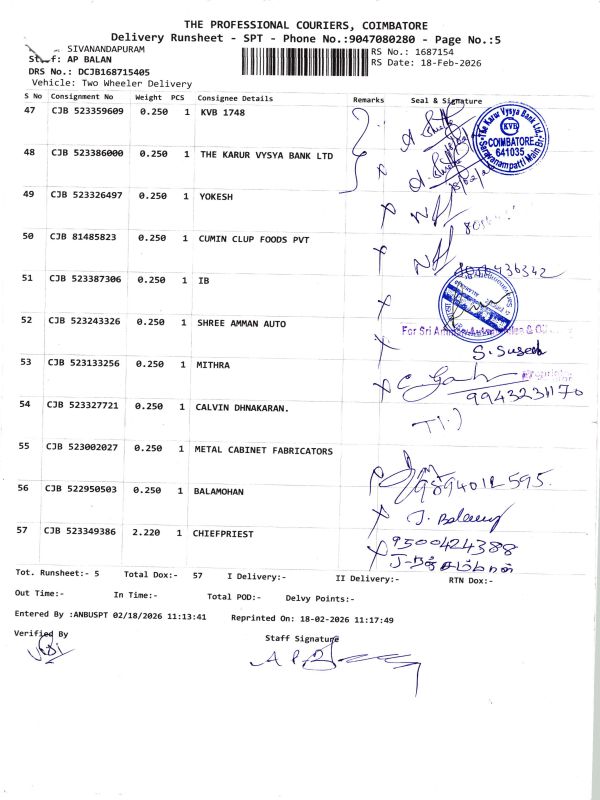 THE PROFESSIONAL COURIERS, COIMBATORE
Delivery Runsheet - SPT - Phone No.:9047080280 - Page No.:5
SIVANANDAPURAM
RS No.: 1687154
AP BALAN
RS Date: 18-Feb-2026
DRS No.: DCJB168715405
Vehicle: Two Wheeler Delivery
S No Consignment No Weight PCS Consignee Details Remarks Seal & Signature
47 CJB 523359609 0.250 1 KVB 1748
The Karur Vysya Bank Ltd.
KVB
COIMBATORE
641035
Saravanampatti Main Br.
48 CJB 523386000 0.250 1 THE KARUR VYSYA BANK LTD
49 CJB 523326497 0.250 1 YOKESH
50 CJB 81485823 0.250 1 CUMIN CLUP FOODS PVT
51 CJB 523387306 0.250 1 IB
52 CJB 523243326 0.250 1 SHREE AMMAN AUTO
For Sri
S. Suresh
53 CJB 523133256 0.250 1 MITHRA
9943231170
54 CJB 523327721 0.250 1 CALVIN DHNAKARAN.
55 CJB 523002027 0.250 1 METAL CABINET FABRICATORS
56 CJB 522950503 0.250 1 BALAMOHAN
57 CJB 523349386 2.220 1 CHIEFPRIEST
9500424388
Tot. Runsheet:- 5 Total Dox:- 57 I Delivery:- II Delivery:- RTN Dox:-
Out Time:- In Time:- Total POD:- Delvy Points:-
Entered By :ANBUSPT 02/18/2026 11:13:41 Reprinted On: 18-02-2026 11:17:49
Verified By Staff Signature